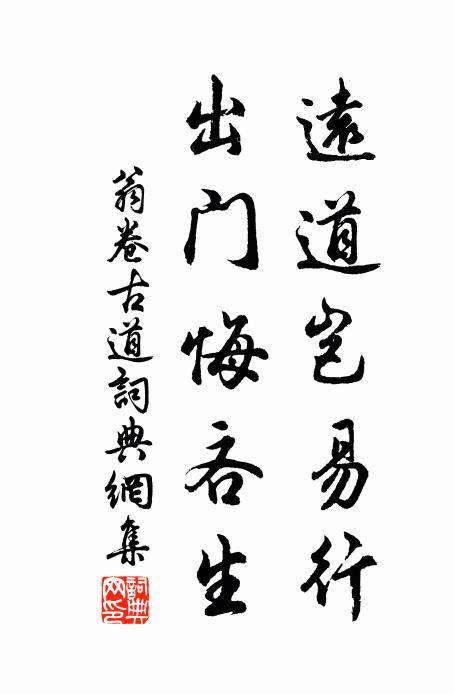 遠道岂易行
出门悔吝生
翁卷古道詞典網集
詞典网印